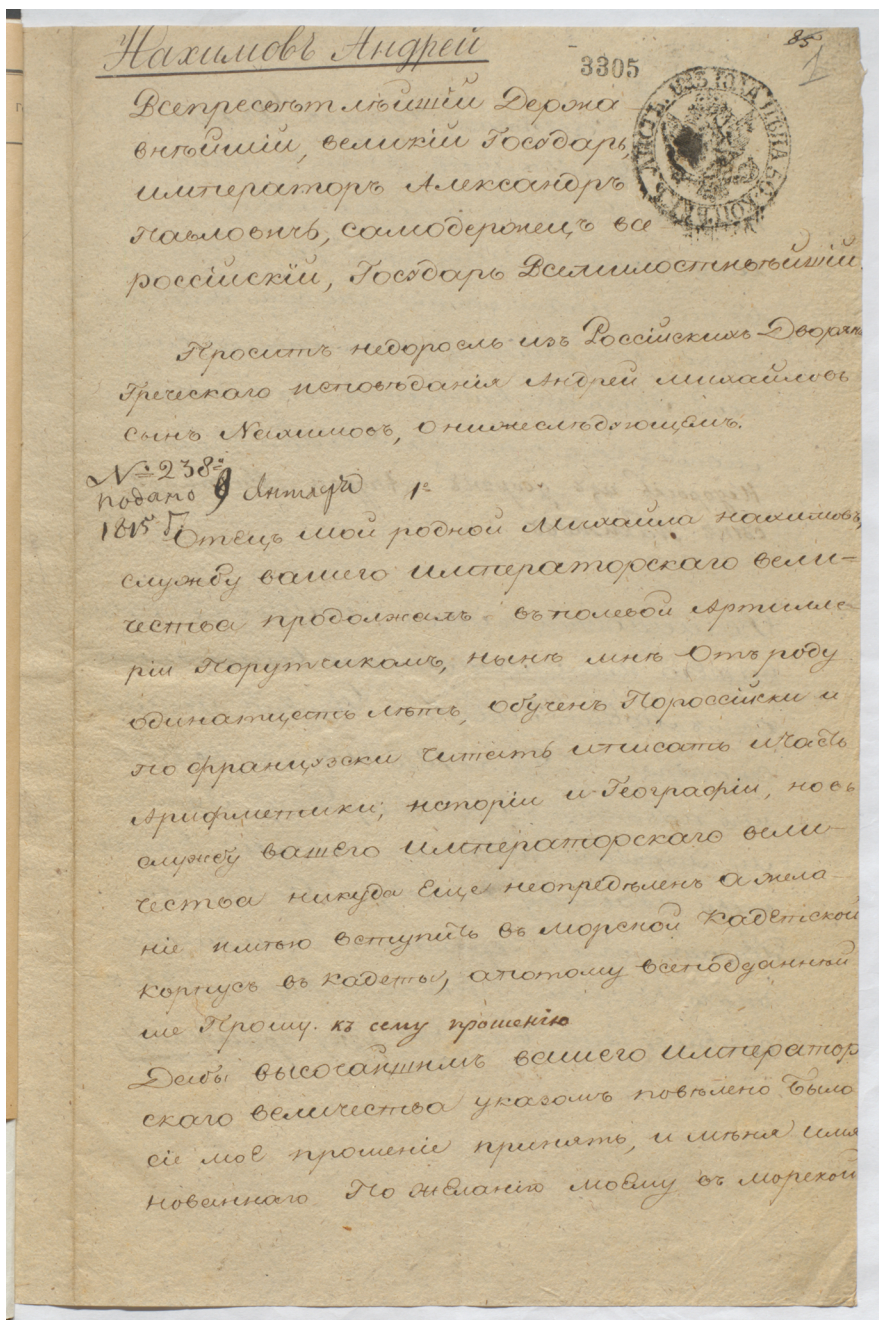 Нахимовъ Андрей
85
1
3305
Всепресвѣтлѣйшій Держа
внѣйшій, великій Государь,
императоръ Александръ
Павловичь, самодержецъ все
россійскій, Государь Всемилостивѣйшій.
Проситъ недоросль изъ Россійскихъ Дворянъ
Греческаго исповѣданія Андрей Михайловъ
сынъ Нахимовъ, о нижеслѣдующемъ.
№ 238
подано 9 Января
1815 г.
1е
Отецъ мой родной Михайла нахимовъ,
службу вашего императорскаго вели-
чества продолжалъ въ полевой Артилле-
ріи Порутчикомъ, нынѣ мнѣ отъ роду
одинатцеть лѣтъ, обученъ Пороссійски и
по французски читать иписать ичасть
Арифметики, исторіи и Географіи, новъ
службу вашего императорскаго вели-
чества никуда еще неопредѣленъ а жела-
ніе имѣю вступить въ морской кадетской
корпусъ въ кадеты, апотому всеподданнѣй
ше Прошу. къ сему прошенію
Дабы высочайшимъ вашего император
скаго величества указомъ повѣлено было
сіе мое прошеніе принять, и мѣня имя
нованнаго По желанію моему въ морской